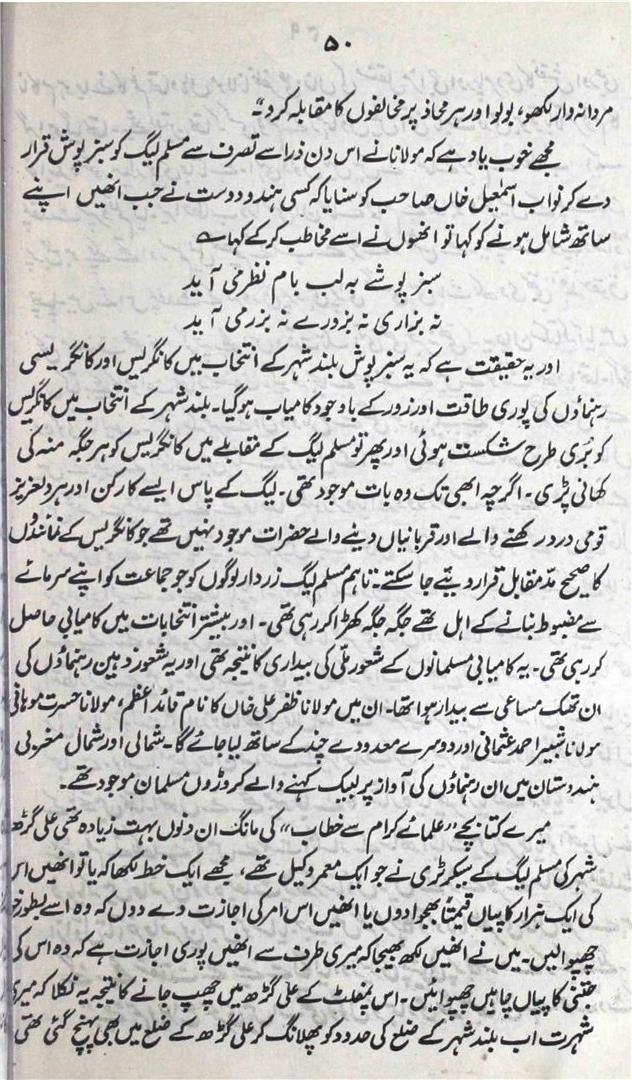 ۵۰
مردانہ دار لکھو، بولو اور ہر محاذ پر مخالفوں کا مقابلہ کرو“
مجھے خوب یاد ہے کہ مولانا نے اس دن ذرا سے تصرف سے مسلم لیگ کو سبز پوش قرار
دے کر نواب اسمٰعیل خاں صاحب کو سنایا کہ کسی ہندو دوست نے جب انھیں اپنے
ساتھ شامل ہونے کو کہا تو انھوں نے اسے مخاطب کر کے کہا ؎
سبز پوشے بہ لب بام نظر می آید
نہ بزاری نہ بزورے نہ بزر می آید
اور یہ حقیقت ہے کہ یہ سبز پوش بلند شہر کے انتخاب میں کانگریس اور کانگریسی
رہنماؤں کی پوری طاقت اور زور کے باوجود کامیاب ہوگیا۔ بلند شہر کے انتخاب میں کانگریس
کو بُری طرح شکست ہوئی اور پھر تو مسلم لیگ کے مقابلے میں کانگریس کو ہر جگہ منہ کی
کھانی پڑی۔ اگرچہ ابھی تک وہ بات موجود تھی۔ لیگ کے پاس ایسے کارکن اور ہر دلعزیز
قومی درد رکھنے والے اور قربانیاں دینے والے حضرات موجود نہیں تھے جو کانگریس کے نمائندوں
کا صحیح مدّ مقابل قرار دیئے جا سکتے۔ تاہم مسلم لیگ زردار لوگوں کو جو جماعت کو اپنے سرمائے
سے مضبوط بنانے کے اہل تھے جگہ جگہ کھڑا کر رہی تھی۔ اور بیشتر انتخابات میں کامیابی حاصل
کر رہی تھی۔ یہ کامیابی مسلمانوں کے شعورِ ملّی کی بیداری کا نتیجہ تھی اور یہ شعور ذہین رہنماؤں کی
ان تھک مساعی سے بیدار ہوا تھا۔ ان میں مولانا ظفر علی خاں کا نام قائد اعظم، مولانا حسرت موہانی
مولانا شبیر احمد عثمانی اور دوسرے معدودے چند کے ساتھ لیا جائے گا۔ شمالی اور شمال مغربی
ہندوستان میں ان رہنماؤں کی آواز پر لبیک کہنے والے کروڑوں مسلمان موجود تھے۔
میرے کتابچے ”علمائے کرام سے خطاب“ کی مانگ ان دنوں بہت زیادہ تھی علی گڑھ
شہر کی مسلم لیگ کے سیکرٹری نے جو ایک معمر وکیل تھے، مجھے ایک خط لکھا کہ یا تو انھیں اس
کی ایک ہزار کاپیاں قیمتاً بھجوا دوں یا انھیں اس امر کی اجازت دے دوں کہ وہ اسے بطور
چھپوالیں۔ میں نے انھیں لکھ بھیجا کہ میری طرف سے انھیں پوری اجازت ہے کہ وہ اس کی
جتنی کاپیاں چاہیں چھپوائیں۔ اس پمفلٹ کے علی گڑھ میں چھپ جانے کا نتیجہ یہ نکلا کہ میری
شہرت اب بلند شہر کے ضلع کی حدود کو پھلانگ کر علی گڑھ کے ضلع میں بھی پہنچ گئی تھی